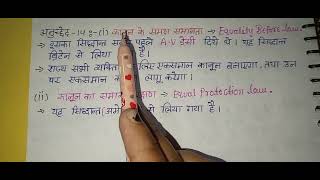 अनुच्छेद-14 :- (i) कानून के समक्ष समानता - Equality Before law.
→ इसका सिद्धान्त सबसे पहले A.V डैसी दिये थे। यह सिद्धान्त
ब्रिटेन से लिया
→ राज्य सभी व्यक्ति लिए एकसमान कानून बनाएगा, तथा उन
पर एकसमान लागू करेगा।
(ii) कानून का समान - Equal Protection law.
→ यह सिद्धान्त से लिया गया है।